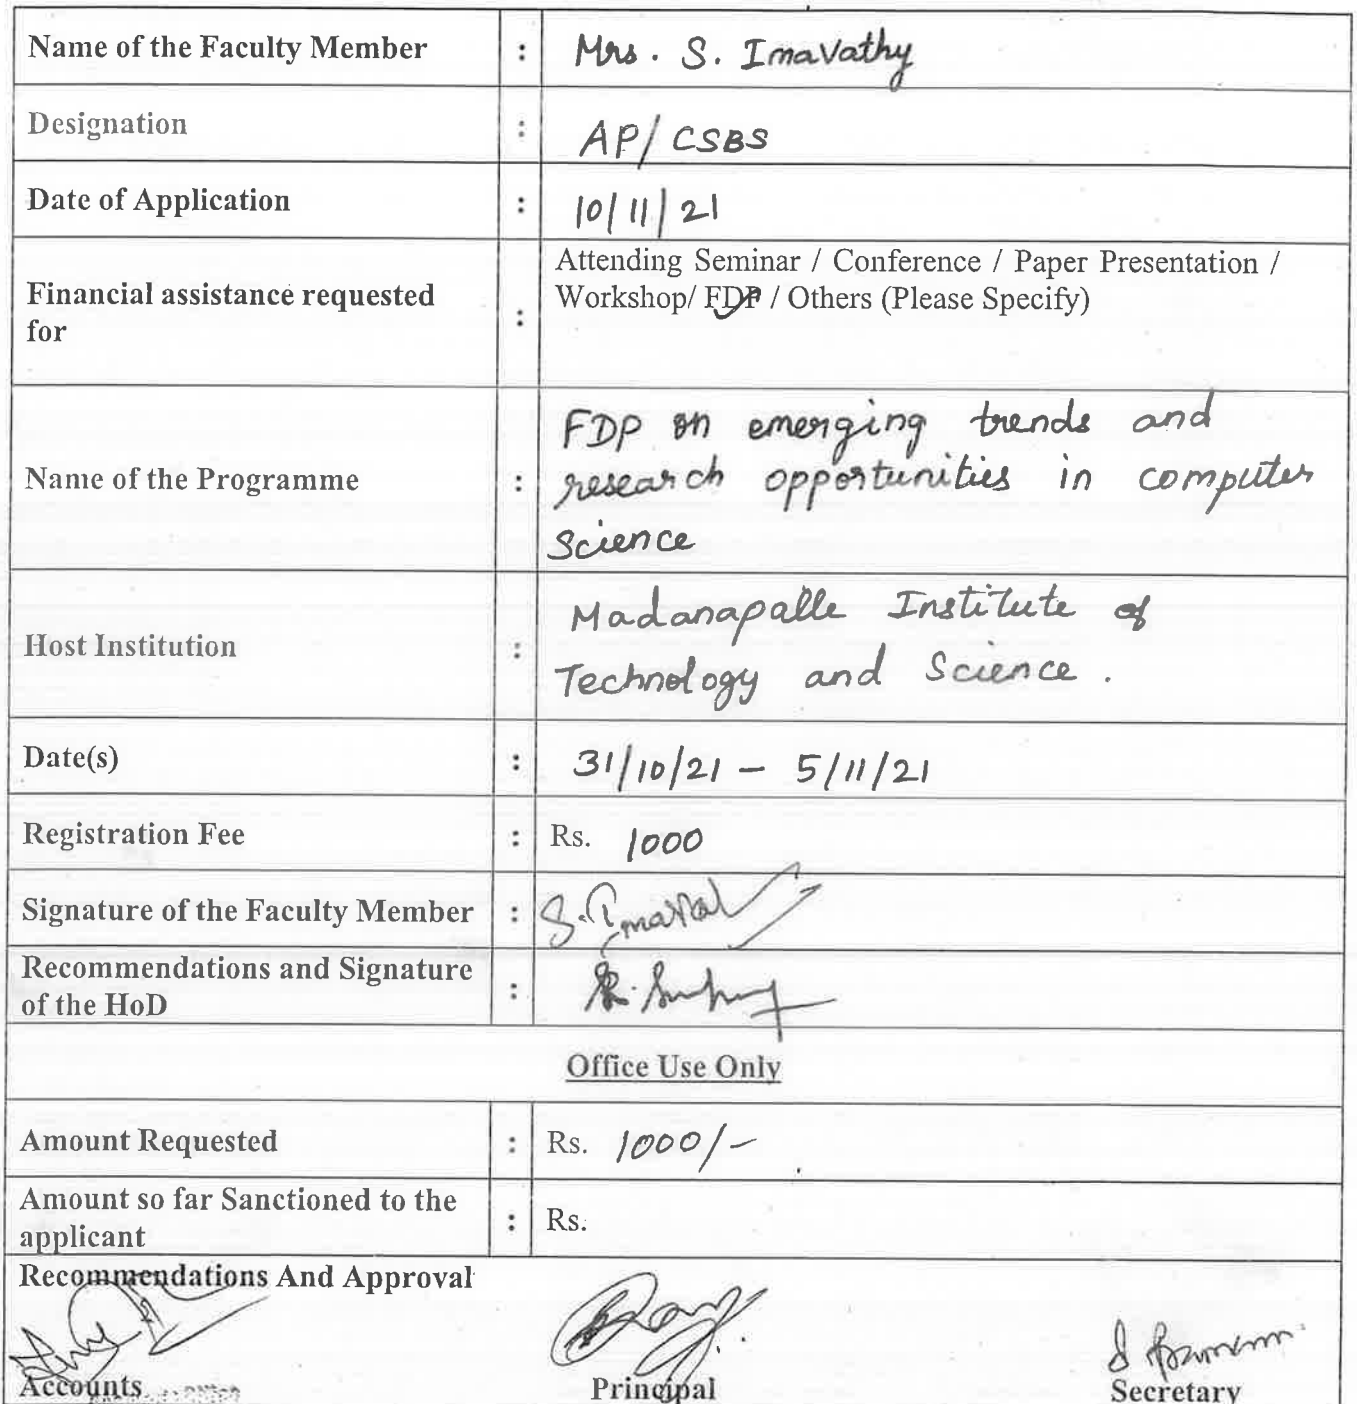 Name of the Faculty Member : Mrs. S. Imavathy
Designation : AP/ CSBS
Date of Application : 10/11/21
Financial assistance requested for : Attending Seminar / Conference / Paper Presentation /
Workshop/ FDP / Others (Please Specify)
Name of the Programme : FDP on emerging trends and
research opportunities in computer
science
Host Institution : Madanapalle Institute of
Technology and Science.
Date(s) : 31/10/21 - 5/11/21
Registration Fee : Rs. 1000
Signature of the Faculty Member :
Recommendations and Signature
of the HoD :
Office Use Only
Amount Requested : Rs. 1000/-
Amount so far Sanctioned to the
applicant : Rs.
Recommendations And Approval
Accounts Principal Secretary